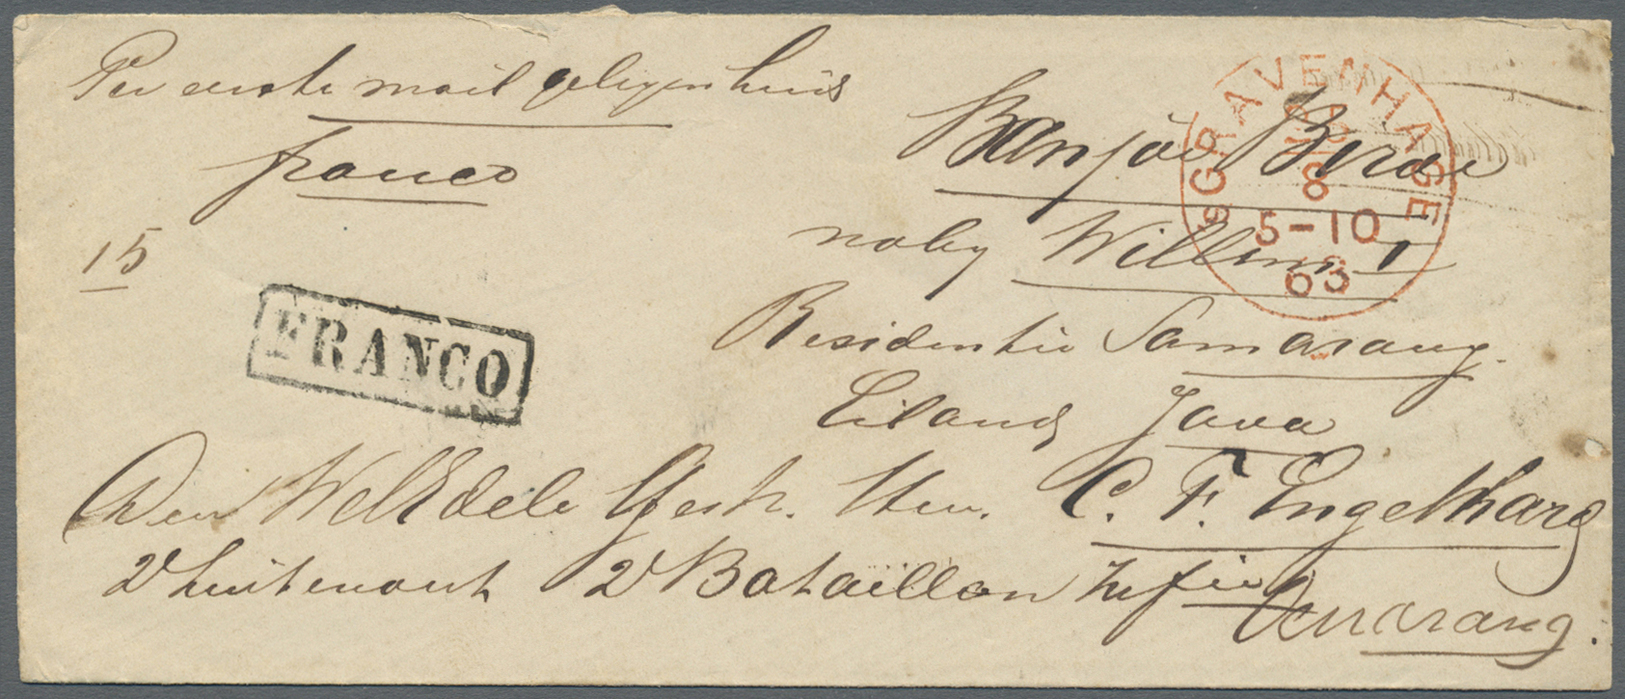 Per eerste mail gelegenheid
franco
15
FRANCO
SGRAVENHAGE
8
5-10
63
Banjoe Biroe
naby Willem I
Residentie Samarang.
Eiland Java
Den WelEdele Gestr. Heer. C. F. Engelhard
2e Luitenant 2e Bataillon Infie
Oenarang.